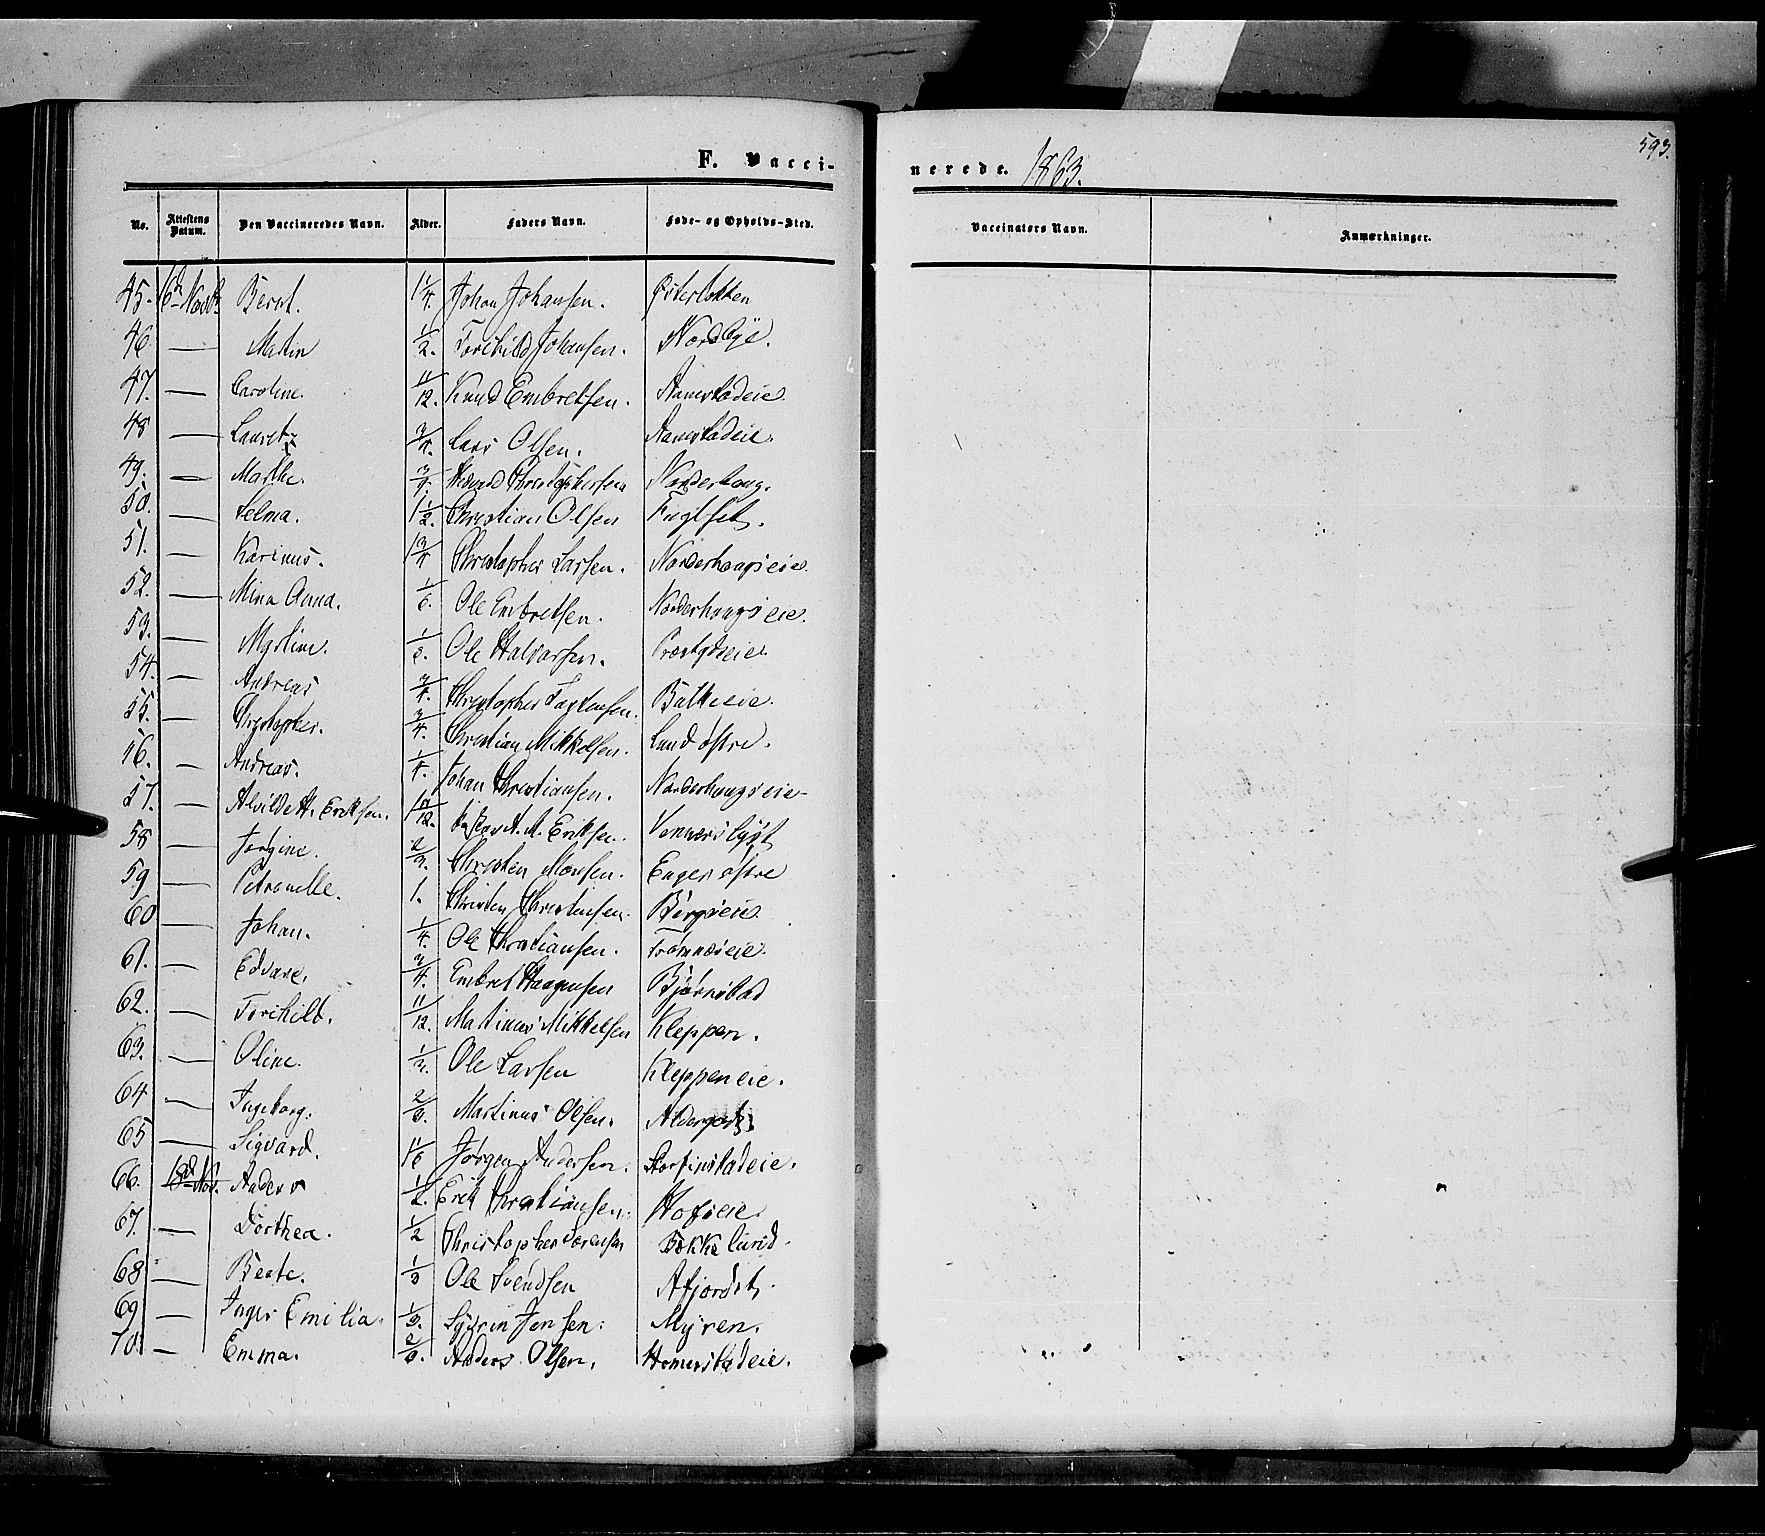 593.
F. Vaccinerede. 1863.
No. Attestens Datum. Den Vaccineredes Navn. Alder. Faders Navn. Føde- og Opholds-Sted. Vaccinators Navn. Anmærkninger.
45. 6d Novbr Bernt. 1 1/4. Johan Johansen. Østerlokken
46 — Martin 1/2. Torchild Johansen. Nordbye.
47. — Caroline. 11/12. Knud Embretsen. Stanerstadeie.
48 — Lauretz 3/4. Lars Olsen. Stanerstadeie.
49. — Marthe. 3/4 Christophersen Norderhoug.
50. — Selma. 1 1/2. Christian Olsen Fuglset.
51. — Karinus. 1 3/4 Christopher Larsen. Norderhougseie.
52. — Mina Anna. 1/6. Ole Embretsen. Norderhougseie.
53. — Myrline. Ole Halvorsen. Præstgdseie
54. — Andreas 3/4. Christopher Bakkeeie.
55. — Christopher. 3/4. Christian Mikkelsen. Lund østre.
56. — Andreas. 1/4. Johan Christiansen. Norderhougseie
57. — Alvilde H. Eriksen. 1 11/12. A. M. Eriksen. Vennerslyst
58 — Jørgine. 2/3. Christen Monsen. Enger østre
59 — Petronelle. 1. Christen Christensen. Bergseie
60 — Johan. 1/4. Ole Christiansen.
61. — Edvard. 3/4. Embret Haagensen Bjørnstad
62. — Torchild. 11/12. Martinus Mikkelsen Kleppen.
63. — Oline. 1/2. Ole Larsen Kleppeneie.
64 — Ingeborg. 2/3. Martinus Olsen.
65 — Sigvard. 1 1/6 Jørgen Andersen.
66. 18d Nov. Anders 1/2. Erik Christiansen. Hofseie.
67. — Dorthea. 1/2 Christopher Sørensen Bøkkelund.
68 — Beate. 1/3 Ole Svendsen Afjordst.
69 — Inger Emilia. 1/3. Syvrin Jensen. Myren.
70. — Emma. 2/3. Anders Olsen. Homerstadeie.